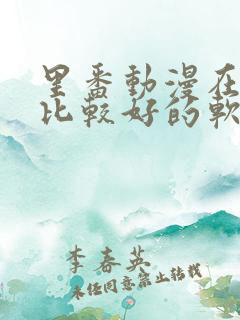 里番動漫在
比較好的軟
李春英
未经同意禁止转载